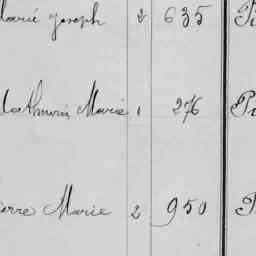 Marie Joseph 2 635
Mathurin Marie 1 276
Pierre Marie 2 950